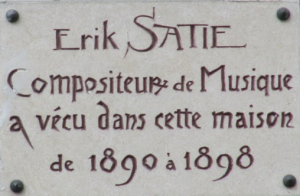 Erik SATIE
Compositeur de Musique
a vécu dans cette maison
de 1890 à 1898